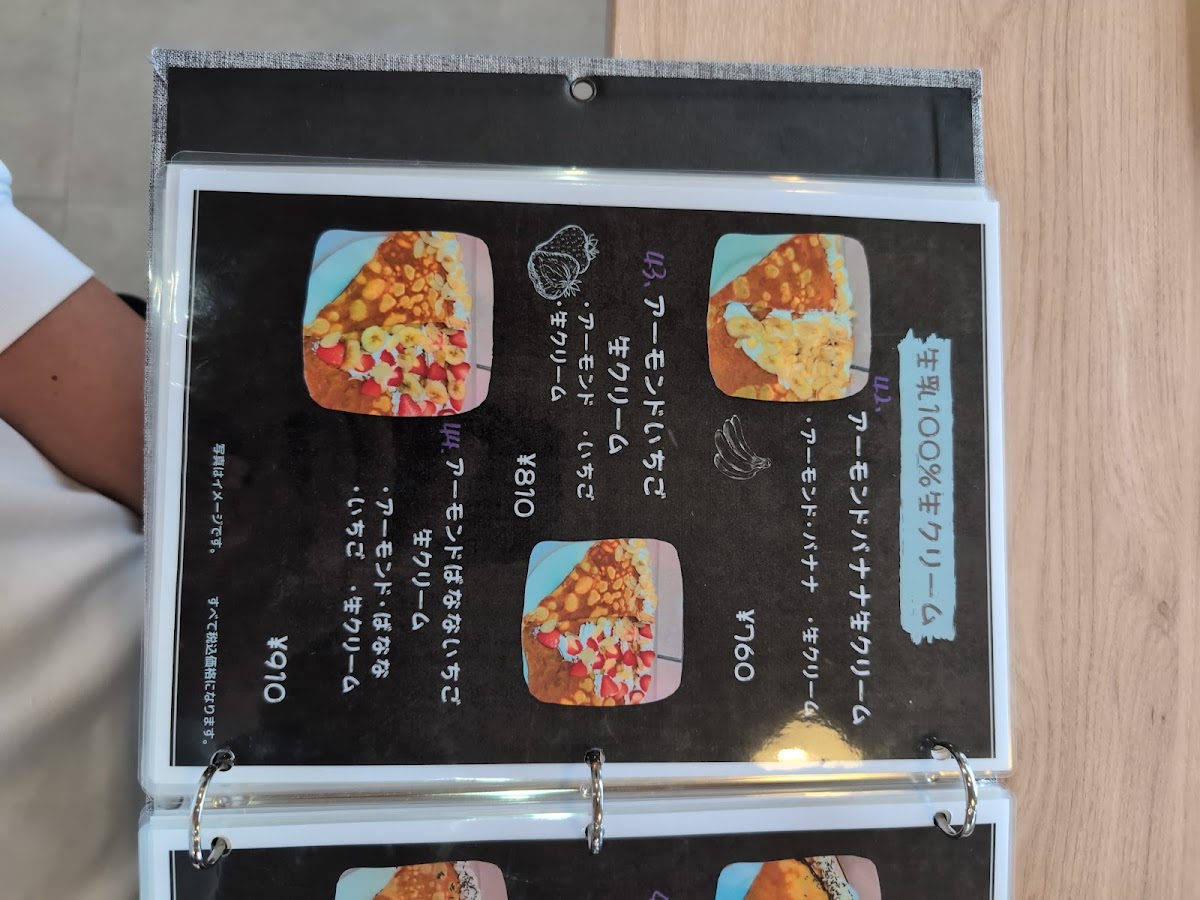 生乳100%生クリーム
42.
アーモンドバナナ生クリーム
・アーモンド・バナナ ・生クリーム
¥760
43. アーモンドいちご
生クリーム
・アーモンド ・いちご
・生クリーム
¥810
44. アーモンドばなないちご
生クリーム
・アーモンド・ばなな
・いちご ・生クリーム
¥910
写真はイメージです。 すべて税込価格になります。